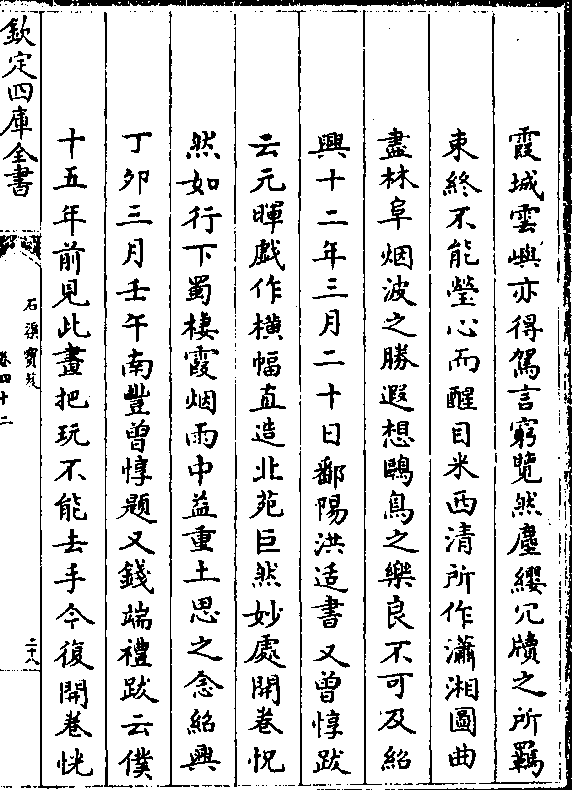 霞城雲嶼亦得駕言窮覽然塵纓冗牘之所羈
束終不能瑩心而醒目米西清所作瀟湘圖曲
盡林阜烟波之勝遐想鷗鳥之樂良不可及紹
興十二年三月二十日鄱陽洪适書又曾惇跋
云元暉戲作橫幅直造北苑巨然妙處開卷怳
然如行下蜀棲霞烟雨中益重土思之念紹興
丁卯三月壬午南豐曾惇題又錢端禮跋云僕
十五年前見此畫把玩不能去手今復開卷恍
欽定四庫全書
石渠寶笈
卷四十二
二十八